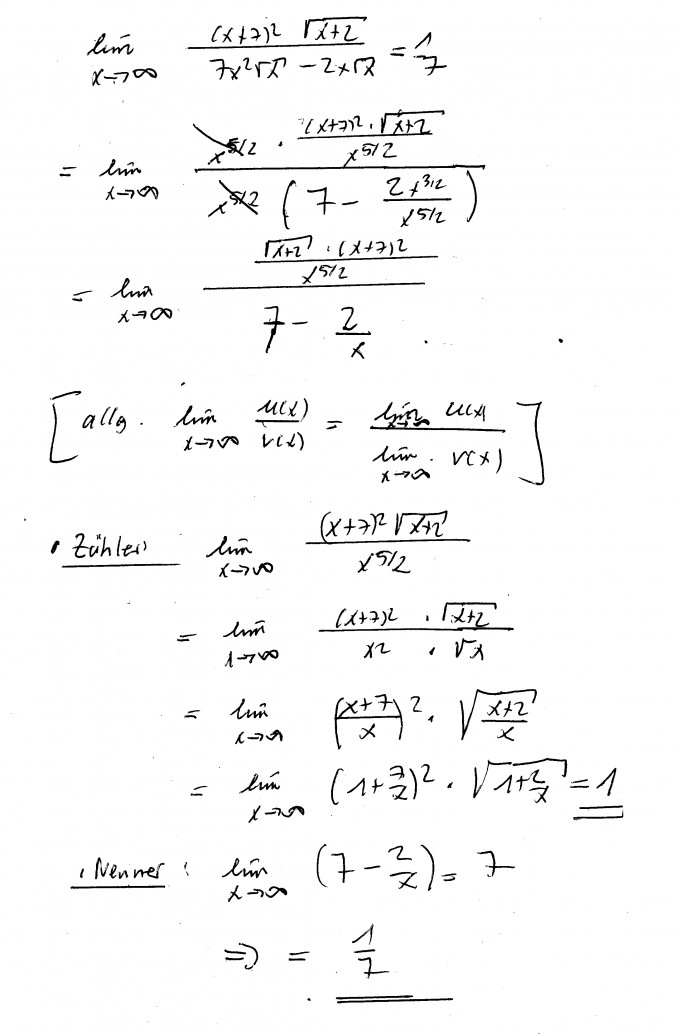 lim x→∞ (x+7)² √(x+2) / (7x²√x − 2x√x) = 1/7
= lim x→∞ (x^5/2 · ((x+7)² · √(x+2)) / x^5/2) / (x^5/2 (7 − 2x^3/2 / x^5/2))
= lim x→∞ ((√(x+2) · (x+7)²) / x^5/2) / (7 − 2/x)
[allg. lim x→∞ u(x)/v(x) = lim x→∞ u(x) / lim x→∞ v(x)]
• Zähler lim x→∞ (x+7)² √(x+2) / x^5/2
= lim x→∞ (x+7)² · √(x+2) / x² · √x
= lim x→∞ ((x+7)/x)² · √((x+2)/x)
= lim x→∞ (1+7/x)² · √(1+2/x) = 1
• Nenner : lim x→∞ (7 − 2/x) = 7
⇒ = 1/7